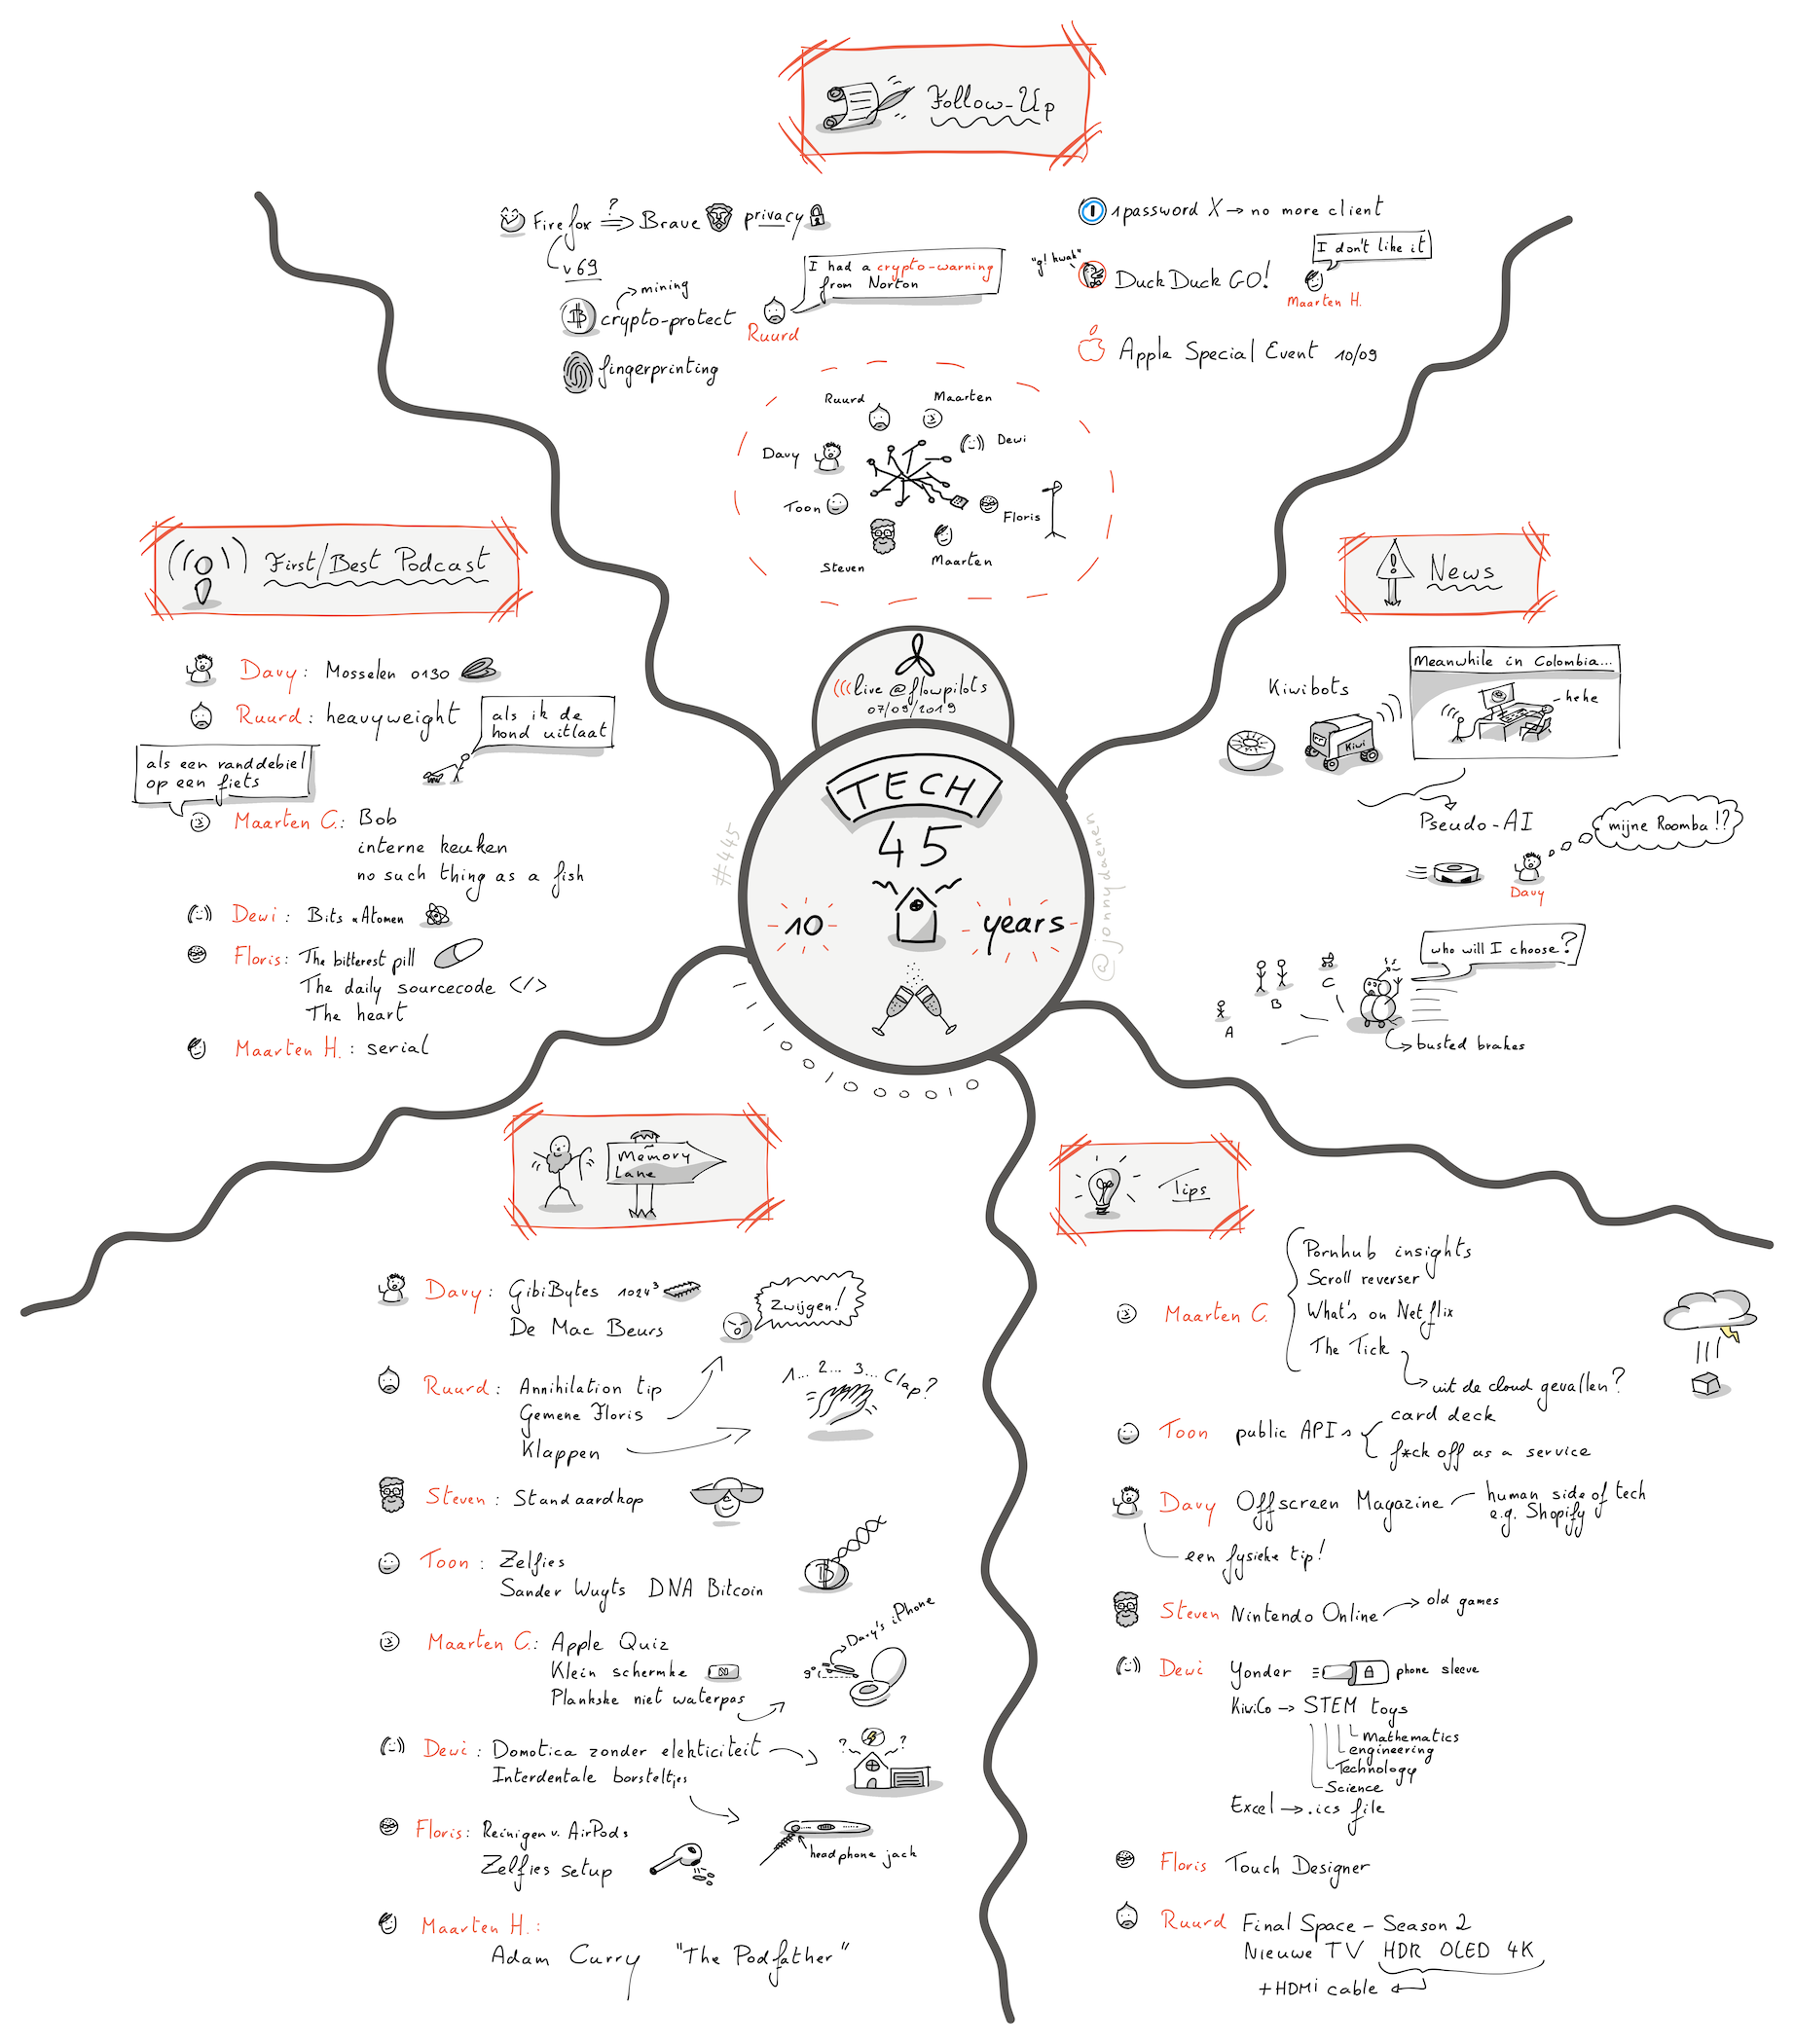 Follow-Up
Firefox ? => Brave privacy
v69
mining
crypto-protect
I had a crypto-warning
from Norton
Ruurd
fingerprinting
1password X → no more client
I don't like it
"g! kwak"
DuckDuckGO!
Maarten H.
Apple Special Event 10/09
Ruurd
Maarten
Davy
Dewi
Toon
Floris
Steven
Maarten
First/Best Podcast
Davy: Mosselen 0130
Ruurd: heavyweight
als ik de
hond uitlaat
als een randdebiel
op een fiets
Maarten C.: Bob
interne keuken
no such thing as a fish
Dewi: Bits & Atomen
Floris: The bitterest pill
The daily sourcecode </>
The heart
Maarten H.: serial
(((live @ flowpilots
07/09/2019
TECH
45
10 years
#445
@jonnhdaenen
01000010
News
Kiwibots
Kiwi
Meanwhile in Colombia...
hehe
Pseudo-AI
mijne Roomba!?
Davy
who will I choose?
A
B
C
busted brakes
Memory
Lane
Davy: GibiBytes 1024³
De Mac Beurs
Zwijgen!
Ruurd: Annihilation tip
Gemene Floris
Klappen
1... 2... 3... Clap?
Steven: Standaardkop
Toon: Zelfies
Sander Wuyts DNA Bitcoin
Maarten C.: Apple Quiz
Klein schermke
Plankske niet waterpas
Davy's iPhone
9°
Dewi: Domotica zonder elekticiteit
Interdentale borsteltjes
? ?
Floris: Reinigen v. AirPods
Zelfies setup
headphone jack
Maarten H.:
Adam Curry "The Podfather"
Tips
Maarten C.
Pornhub insights
Scroll reverser
What's on Netflix
The Tick
uit de cloud gevallen?
Toon public APIs
card deck
f*ck off as a service
Davy Offscreen Magazine
human side of tech
e.g. Shopify
een fysieke tip!
Steven Nintendo Online → old games
Dewi Yonder phone sleeve
KiwiCo → STEM toys
Mathematics
engineering
Technology
Science
Excel → .ics file
Floris Touch Designer
Ruurd Final Space - Season 2
Nieuwe TV HDR OLED 4K
+HDMI cable